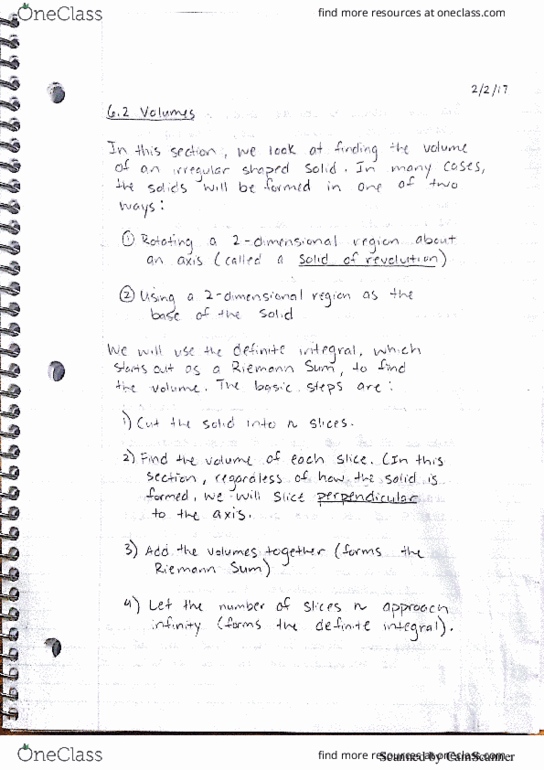 OneClass
find more resources at oneclass.com
2/2/17
6.2 Volumes
In this section, we look at finding the volume
of an irregular shaped solid. In many cases,
the solids will be formed in one of two
ways:
① Rotating a 2-dimensional region about
an axis (called a solid of revolution)
② Using a 2-dimensional region as the
base of the solid
We will use the definite integral, which
starts out as a Riemann Sum, to find
the volume. The basic steps are:
1) Cut the solid into n slices.
2) Find the volume of each slice. (In this
section, regardless of how the solid is
formed, we will slice perpendicular
to the axis.
3) Add the volumes together (forms the
Riemann Sum)
4) Let the number of slices n approach
infinity (forms the definite integral).
OneClass
find more resources at oneclass.com
Scanned by CamScanner